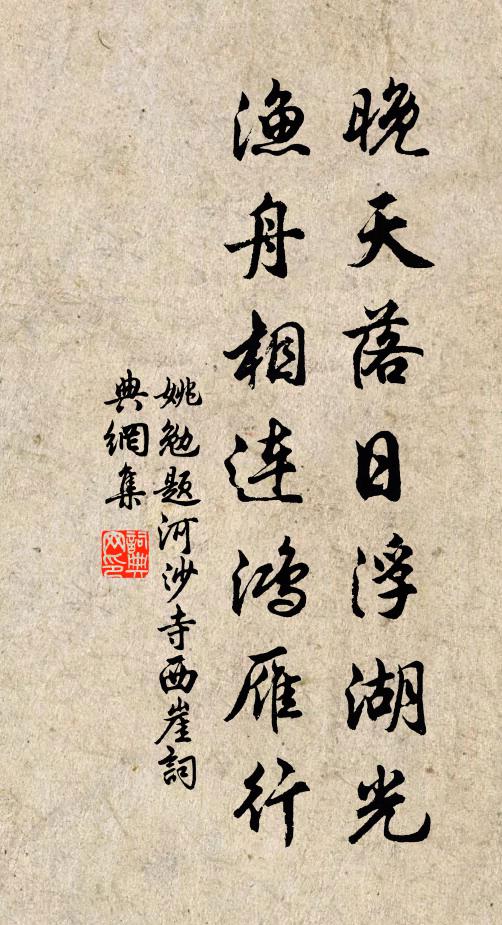 晚天落日浮湖光
渔舟相连鸿雁行
姚勉題河沙寺西崖詞
典網集
詞典
网印